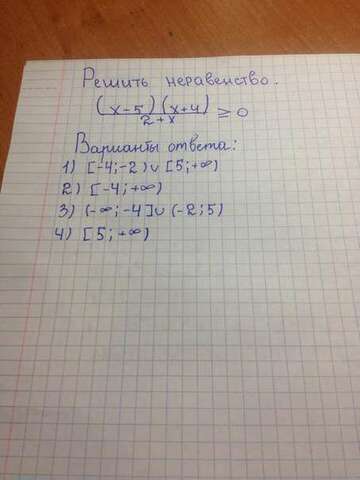 Решить неравенство.
(x-5)(x+4)
2+x
≥0
Варианты ответа:
1) [-4;-2) ∪ [5;+∞)
2) [-4;+∞)
3) (-∞;-4] ∪ (-2;5)
4) [5;+∞)